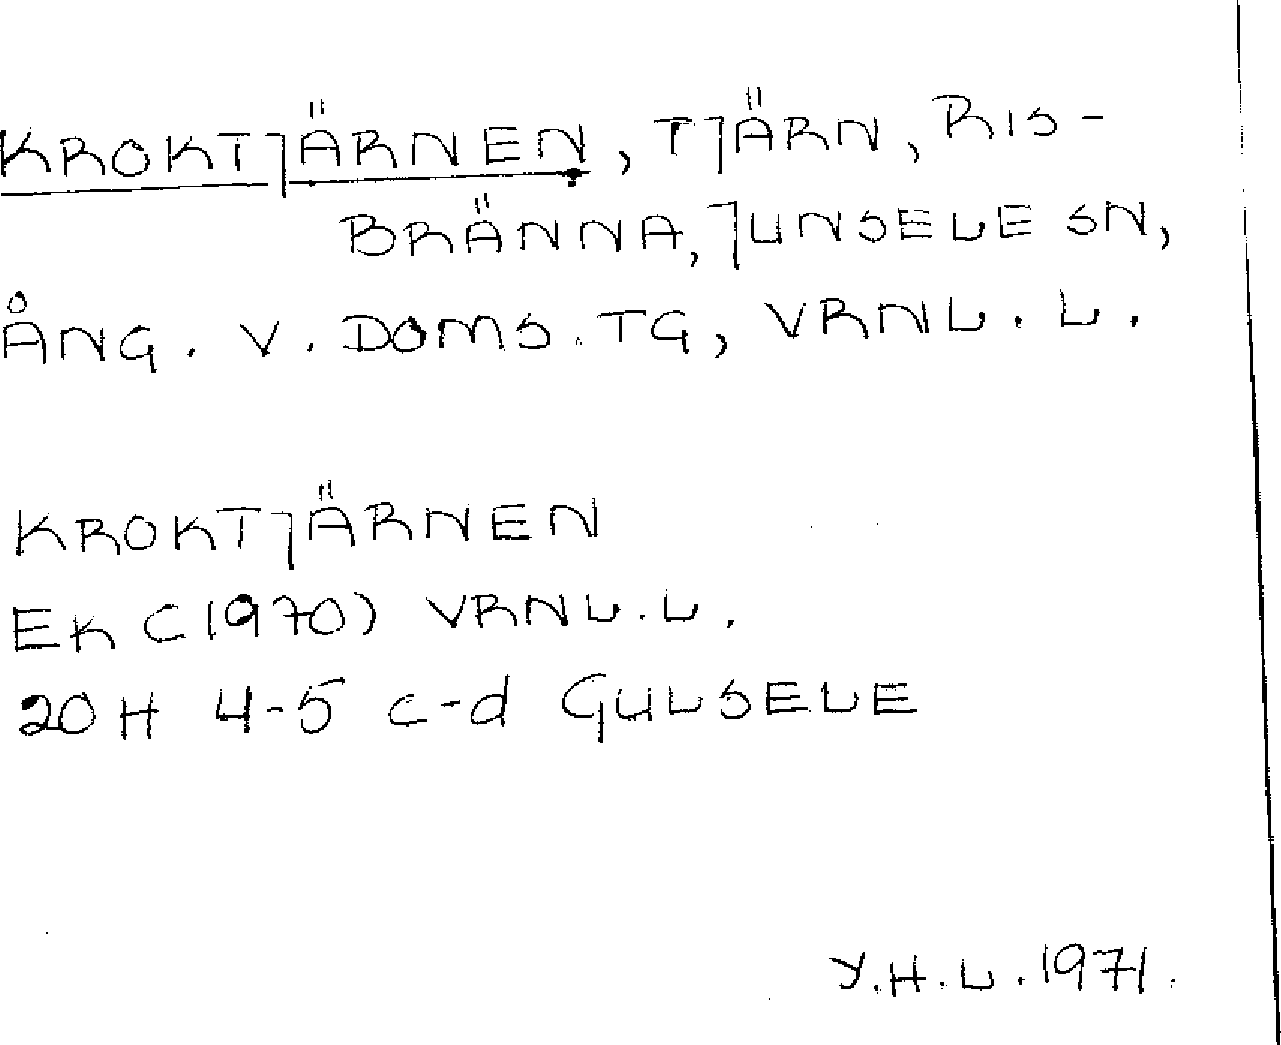 KROKTJÄRNEN, TJÄRN, RIS-
BRÄNNA, JUNSELE SN,
ÅNG. V. DOMS. TG, VRNL. L.
KROKTJÄRNEN
EK (1970) VRNL. L.
20 H 4-5 c-d GULSELE
Y.H.L. 1971.